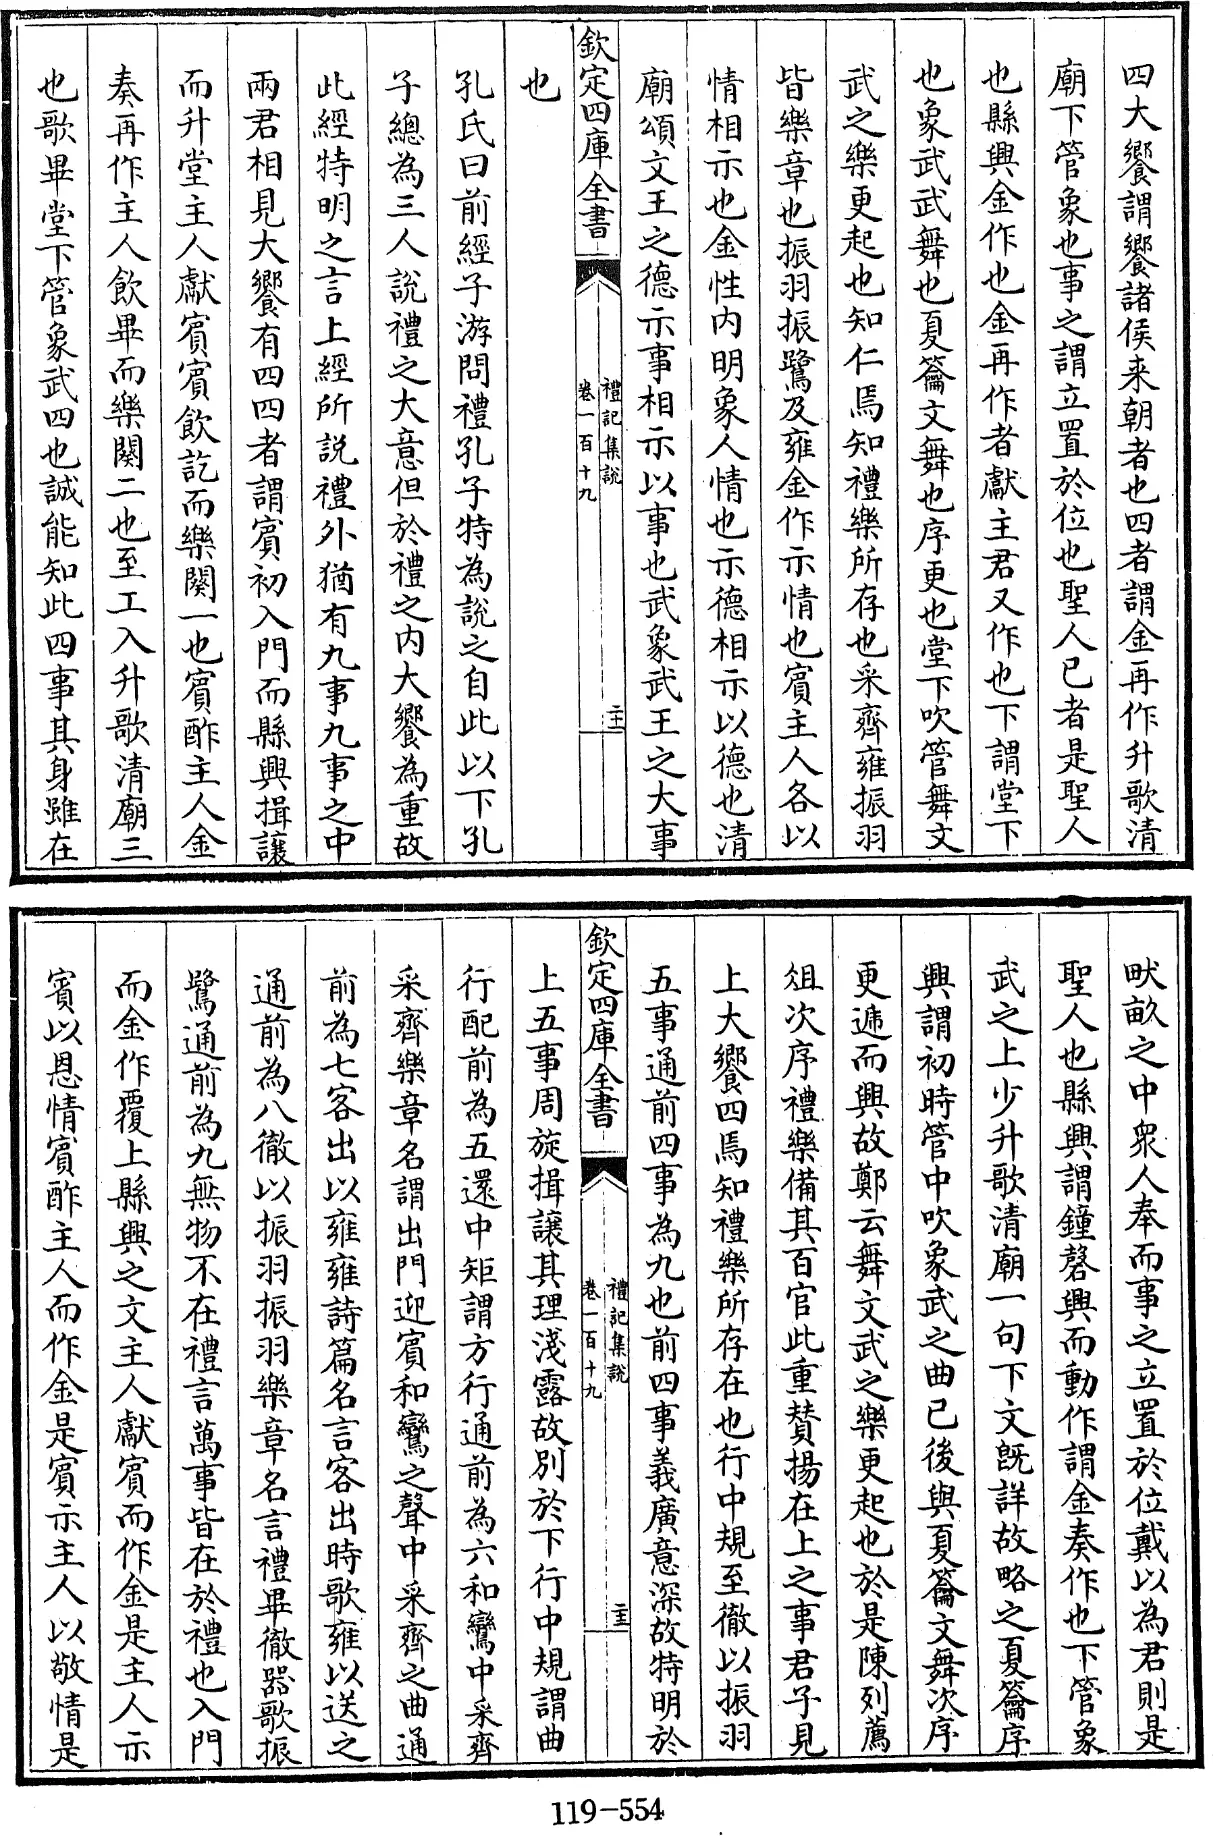 四大饗謂饗諸侯来朝者也四者謂金再作升歌清
廟下管象也事之謂立置於位也聖人已者是聖人
也縣興金作也金再作者獻主君又作也下謂堂下
也象武武舞也夏籥文舞也序更也堂下吹管舞文
武之樂更起也知仁焉知禮樂所存也采齊雍振羽
皆樂章也振羽振鷺及雍金作示情也賓主人各以
情相示也金性内明象人情也示德相示以德也清
廟頌文王之德示事相示以事也武象武王之大事
欽定四庫全書
禮記集說
卷一百十九
二十二
也
孔氏曰前經子游問禮孔子特為說之自此以下孔
子總為三人說禮之大意但於禮之内大饗為重故
此經特明之言上經所説禮外猶有九事九事之中
兩君相見大饗有四四者謂賓初入門而縣興揖讓
而升堂主人獻賓賓飲訖而樂闋一也賓酢主人金
奏再作主人飲畢而樂闋二也至工入升歌清廟三
也歌畢堂下管象武四也誠能知此四事其身雖在
畎畝之中衆人奉而事之立置於位戴以為君則是
聖人也縣興謂鐘磬興而動作謂金奏作也下管象
武之上少升歌清廟一句下文既詳故略之夏籥序
興謂初時管中吹象武之曲已後與夏籥文舞次序
更遞而興故鄭云舞文武之樂更起也於是陳列薦
俎次序禮樂備其百官此重賛揚在上之事君子見
上大饗四焉知禮樂所存在也行中規至徹以振羽
五事通前四事為九也前四事義廣意深故特明於
欽定四庫全書
禮記集說
卷一百十九
二十三
上五事周旋揖讓其理淺露故別於下行中規謂曲
行配前為五還中矩謂方行通前為六和鸞中采齊
采齊樂章名謂出門迎賓和鸞之聲中采齊之曲通
前為七客出以雍雍詩篇名言客出時歌雍以送之
通前為八徹以振羽振羽樂章名言禮畢徹器歌振
鷺通前為九無物不在禮言萬事皆在於禮也入門
而金作覆上縣興之文主人獻賓而作金是主人示
賓以恩情賓酢主人而作金是賓示主人以敬情是
119-554